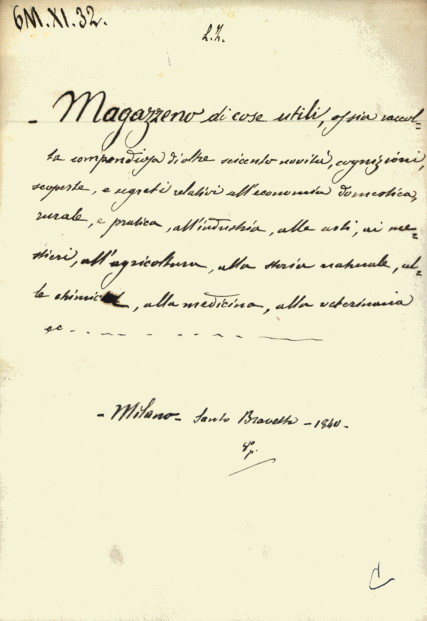 6M.XI.32.
L.Z.
- Magazzeno di cose utili, ossia raccol-
ta compendiosa di oltre seicento novità, cognizioni,
scoperte, e segreti relativi all'economia domestica,
rurale, e pratica, all'industria, alle arti, ai me-
stieri, all'agricoltura, alla storia naturale, al-
la chimica, alla medicina, alla veterinaria
ec.
- Milano - Santo Bravetta - 1840 -